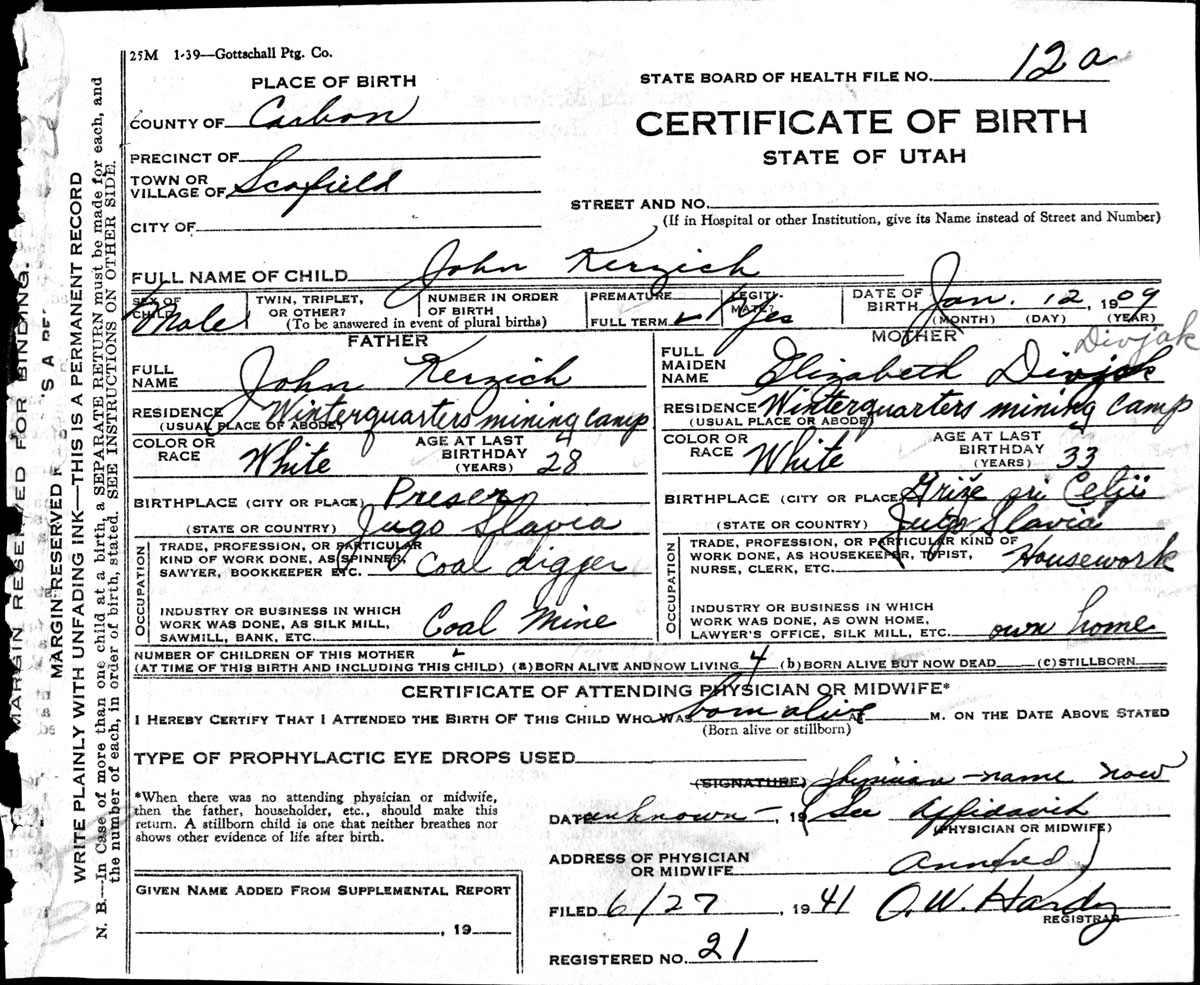 25M 1-39—Gottschall Ptg. Co.
PLACE OF BIRTH
COUNTY OF Carbon
PRECINCT OF
TOWN OR
VILLAGE OF Scofield
CITY OF
STATE BOARD OF HEALTH FILE NO. 12a
CERTIFICATE OF BIRTH
STATE OF UTAH
STREET AND NO.
(If in Hospital or other Institution, give its Name instead of Street and Number)
FULL NAME OF CHILD John Kerzich
SEX OF CHILD Male
TWIN, TRIPLET, OR OTHER?
NUMBER IN ORDER OF BIRTH
(To be answered in event of plural births)
PREMATURE
FULL TERM ✓
LEGITIMATE? Yes
DATE OF BIRTH Jan. 12, 1909
(MONTH) (DAY) (YEAR)
FATHER
FULL NAME John Kerzich
RESIDENCE Winterquarters mining camp
(USUAL PLACE OF ABODE)
COLOR OR RACE White
AGE AT LAST BIRTHDAY (YEARS) 28
BIRTHPLACE (CITY OR PLACE) Preserp
(STATE OR COUNTRY) Jugo Slavia
OCCUPATION
TRADE, PROFESSION, OR PARTICULAR
KIND OF WORK DONE, AS SPINNER,
SAWYER, BOOKKEEPER ETC. Coal digger
INDUSTRY OR BUSINESS IN WHICH
WORK WAS DONE, AS SILK MILL,
SAWMILL, BANK, ETC. Coal Mine
MOTHER
Divjak
FULL MAIDEN NAME Elizabeth Divjak
RESIDENCE Winterquarters mining camp
(USUAL PLACE OR ABODE)
COLOR OR RACE White
AGE AT LAST BIRTHDAY (YEARS) 33
BIRTHPLACE (CITY OR PLACE) Griže pri Celju
(STATE OR COUNTRY) Jugo Slavia
OCCUPATION
TRADE, PROFESSION, OR PARTICULAR KIND OF
WORK DONE, AS HOUSEKEEPER, TYPIST,
NURSE, CLERK, ETC. Housework
INDUSTRY OR BUSINESS IN WHICH
WORK WAS DONE, AS OWN HOME,
LAWYER'S OFFICE, SILK MILL, ETC. own home
NUMBER OF CHILDREN OF THIS MOTHER
(AT TIME OF THIS BIRTH AND INCLUDING THIS CHILD) (a) BORN ALIVE AND NOW LIVING 4 (b) BORN ALIVE BUT NOW DEAD (c) STILLBORN
CERTIFICATE OF ATTENDING PHYSICIAN OR MIDWIFE*
I HEREBY CERTIFY THAT I ATTENDED THE BIRTH OF THIS CHILD WHO WAS born alive AT M. ON THE DATE ABOVE STATED
(Born alive or stillborn)
TYPE OF PROPHYLACTIC EYE DROPS USED
*When there was no attending physician or midwife,
then the father, householder, etc., should make this
return. A stillborn child is one that neither breathes nor
shows other evidence of life after birth.
(SIGNATURE) physician-name now
DATE unknown - , 19 (See Affidavit
(PHYSICIAN OR MIDWIFE)
ADDRESS OF PHYSICIAN
OR MIDWIFE
GIVEN NAME ADDED FROM SUPPLEMENTAL REPORT
, 19
FILED 6/27, 1941 O. W. Hardy
REGISTRAR
REGISTERED NO. 21
MARGIN RESERVED FOR BINDING.
MARGIN RESERVED
WRITE PLAINLY WITH UNFADING INK—THIS IS A PERMANENT RECORD
N. B.—In Case of more than one child at a birth, a SEPARATE RETURN must be made for each, and
the number of each, in order of birth, stated. SEE INSTRUCTIONS ON OTHER SIDE.